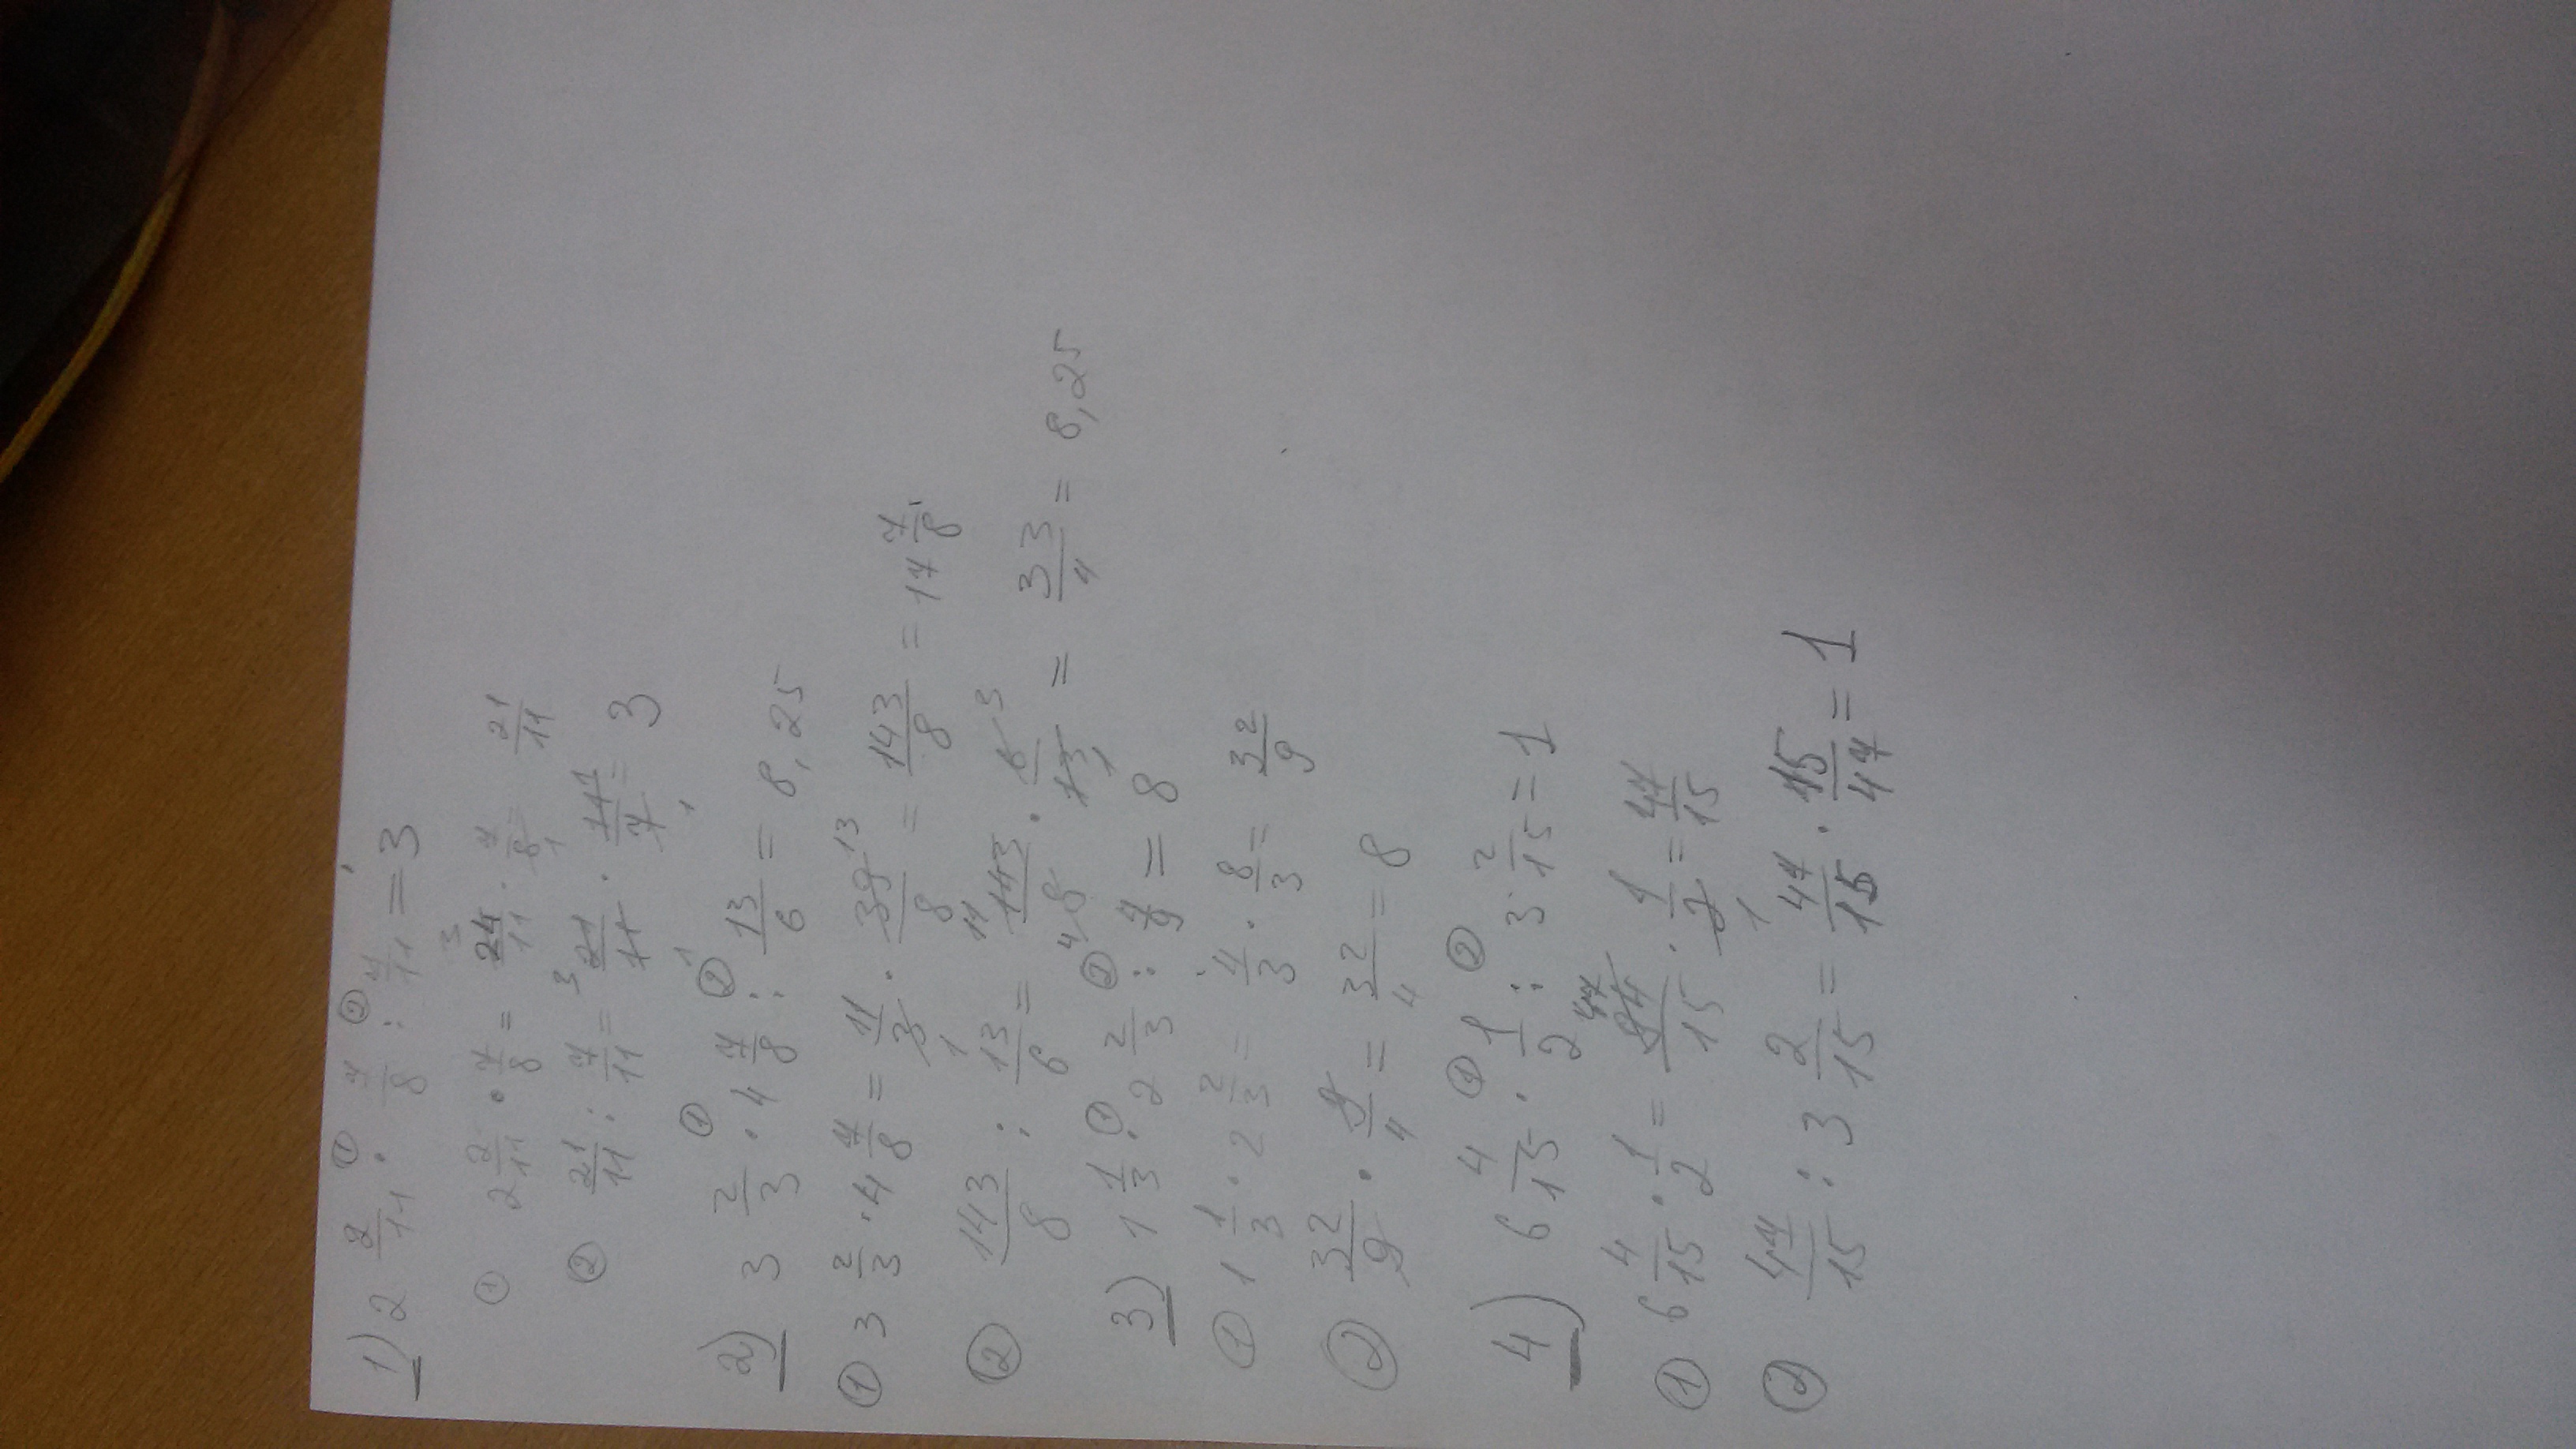 1) 2 2/11 · 7/8 : 7/11 = 3
① 2 2/11 · 7/8 = 24/11 · 7/8 = 21/11
② 21/11 : 7/11 = 21/11 · 11/7 = 3
2) 3 2/3 · 4 7/8 : 13/6 = 8,25
① 3 2/3 · 4 7/8 = 11/3 · 39/8 = 143/8 = 17 7/8
② 143/8 : 13/6 = 143/8 · 6/13 = 33/4 = 8,25
3) 1 1/3 · 2 2/3 : 4/9 = 8
① 1 1/3 · 2 2/3 = 4/3 · 8/3 = 32/9
② 32/9 · 9/4 = 32/4 = 8
4) 6 4/15 · 1/2 : 3 2/15 = 1
① 6 4/15 · 1/2 = 94/15 · 1/2 = 47/15
② 47/15 : 3 2/15 = 47/15 · 15/47 = 1